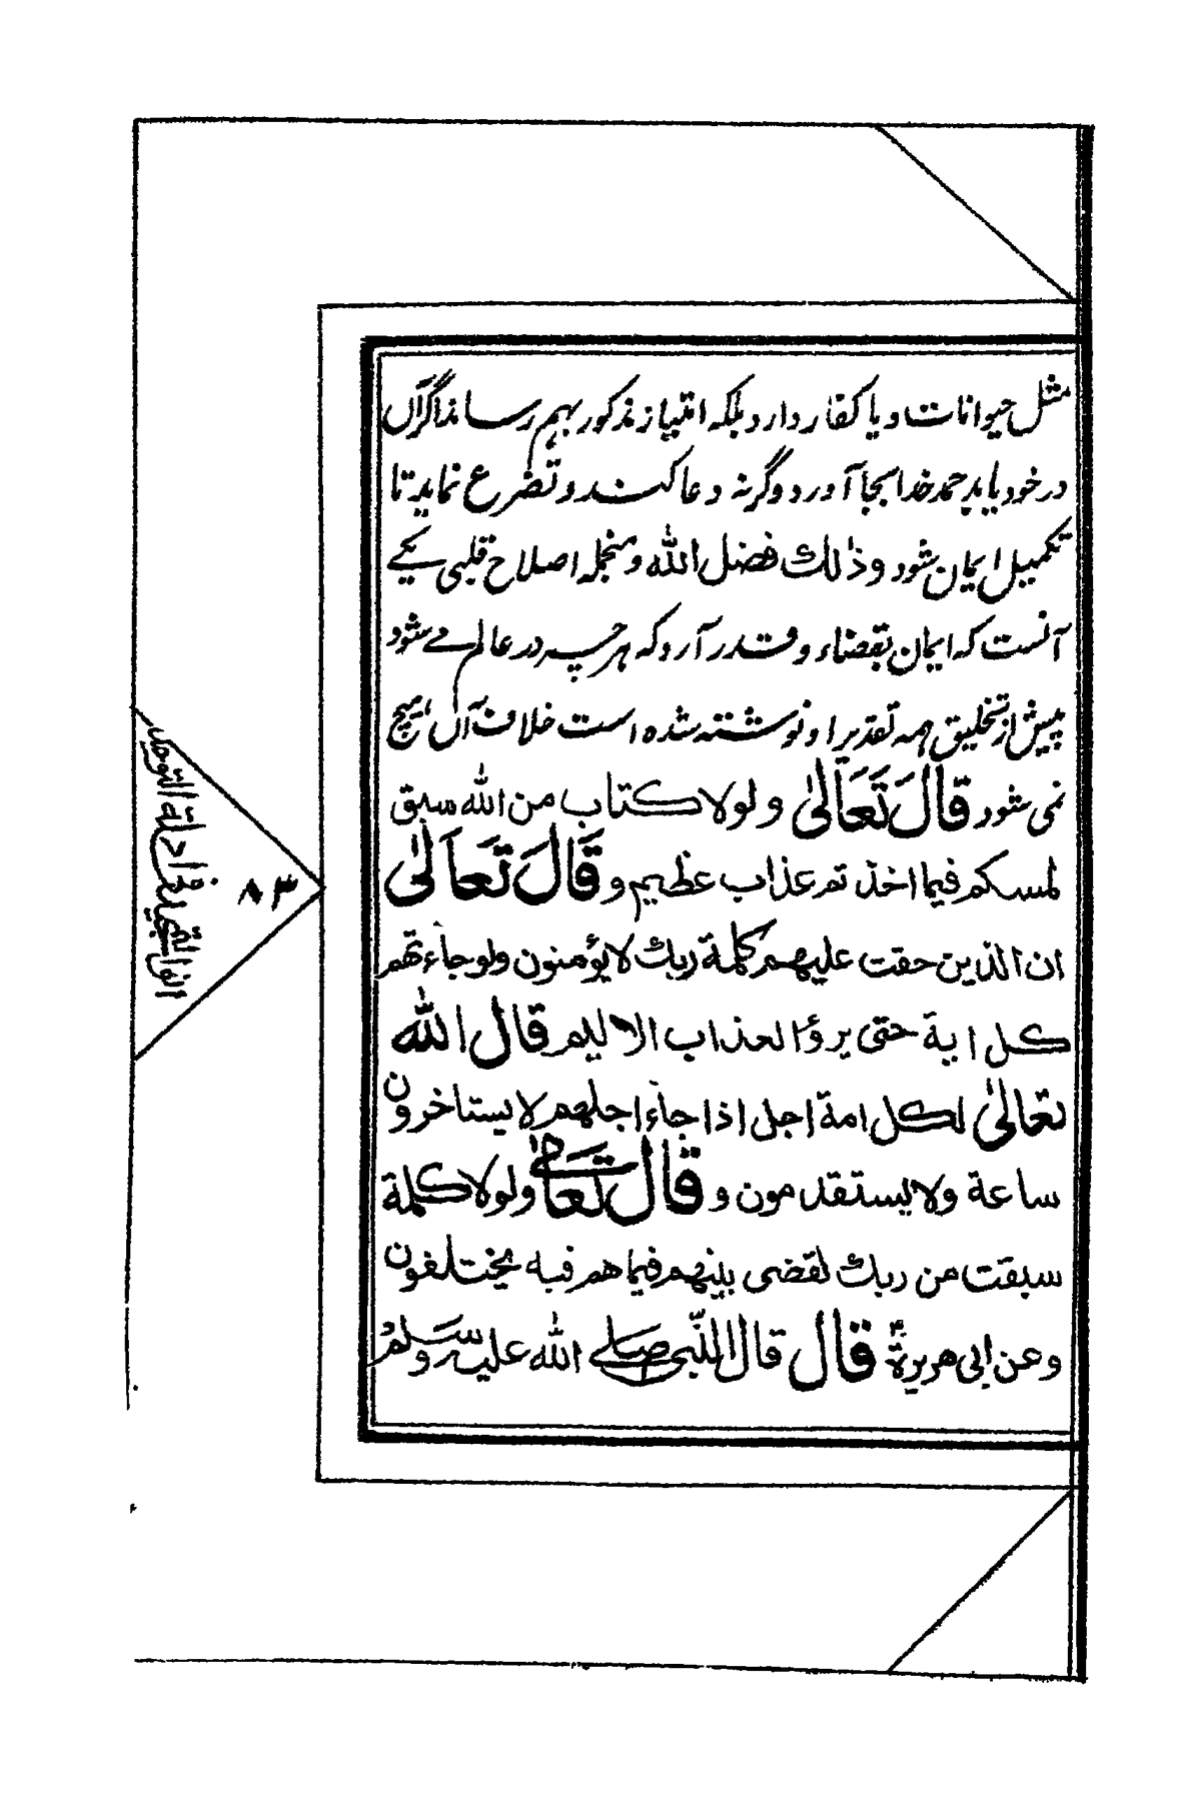 مثل حیوانات و یا کفار دارد بلکه امتیاز مذکور بهم رساند اگر آں
در خود یابد حمد خدا بجا آورد و گرنه دعا کند و تضرع نماید تا
تکمیل ایمان شود وذلك فضل الله و منجمله اصلاح قلبی یکے
آنست که ایمان بقضاء و قدر آرد که هر چه در عالم مے شود
پیش از تخلیق همه تقدیر او نوشته شده است خلاف آں هیچ
نمی شود قَالَ تَعَالیٰ ولولا كتاب من الله سبق
لمسكم فيما اخذتم عذاب عظيم و قَالَ تَعَالیٰ
ان الذين حقت عليهم كلمة ربك لا يؤمنون ولو جاءتهم
كل اية حتى يروُا العذاب الاليم قال الله
تعالیٰ لكل امة اجل اذا جاء اجلهم لا يستاخرون
ساعة ولا يستقدمون و قال تعالیٰ ولولا كلمة
سبقت من ربك لقضى بينهم فيما هم فيه يختلفون
وعن ابی هریرة قال قال النّبی صلی الله علیہ وسلم
۸۳